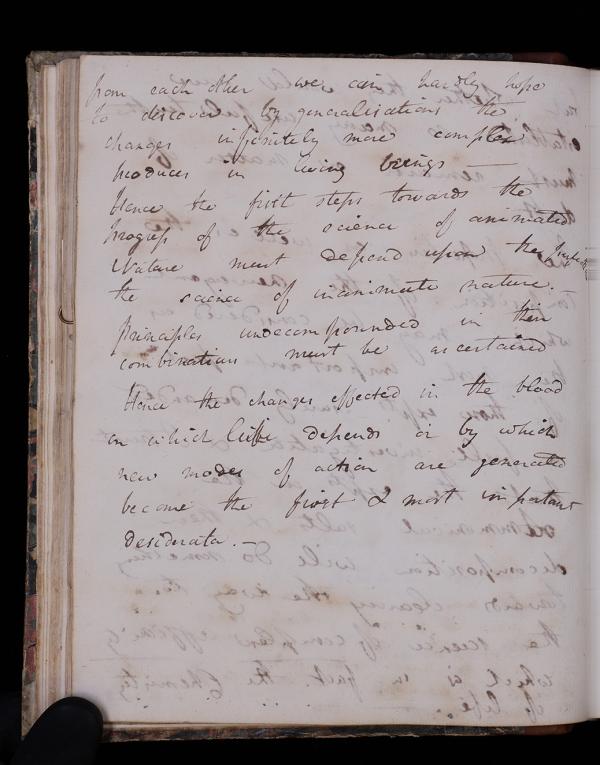 from each other we can hardly hope
to discover by generalisations the
changes infinitely more complex
produces in living beings —
Hence the first steps towards the
progress of the science of animated
Nature must depend upon the
the science of inanimate nature. —
principles undecompounded in their
combinations must be ascertained
Hence the changes effected in the blood
on which life depends or by which
new modes of action are generated
become the first & most important
desiderata. —